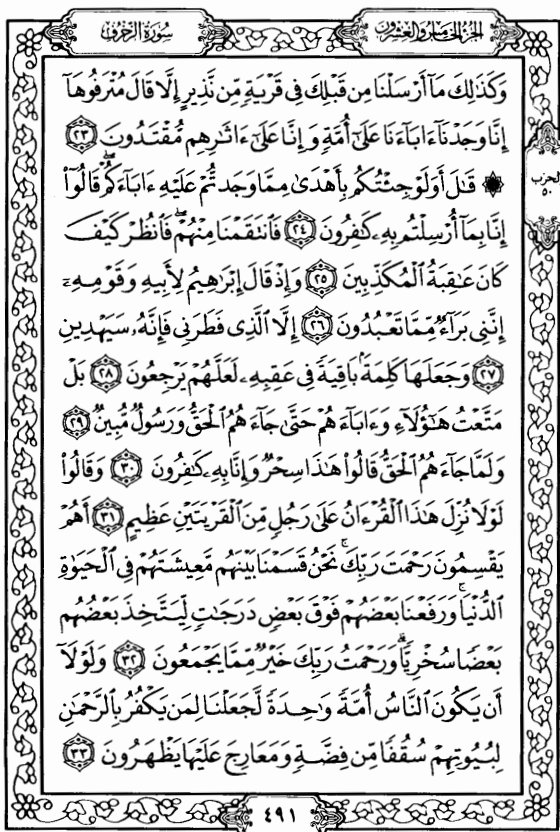 سُورَةُ الزُّخْرُفِ
الجُزْءُ الخَامِسُ وَالْعِشْرُونَ
وَكَذَٰلِكَ مَآ أَرْسَلْنَا مِن قَبْلِكَ فِى قَرْيَةٍ مِّن نَّذِيرٍ إِلَّا قَالَ مُتْرَفُوهَآ
إِنَّا وَجَدْنَآ ءَابَآءَنَا عَلَىٰٓ أُمَّةٍ وَإِنَّا عَلَىٰٓ ءَاثَٰرِهِم مُّقْتَدُونَ ٢٣
۞ قَٰلَ أَوَلَوْ جِئْتُكُم بِأَهْدَىٰ مِمَّا وَجَدتُّمْ عَلَيْهِ ءَابَآءَكُمْ ۖ قَالُوٓا۟
إِنَّا بِمَآ أُرْسِلْتُم بِهِۦ كَٰفِرُونَ ٢٤ فَٱنتَقَمْنَا مِنْهُمْ ۖ فَٱنظُرْ كَيْفَ
كَانَ عَٰقِبَةُ ٱلْمُكَذِّبِينَ ٢٥ وَإِذْ قَالَ إِبْرَٰهِيمُ لِأَبِيهِ وَقَوْمِهِۦٓ
إِنَّنِى بَرَآءٌ مِّمَّا تَعْبُدُونَ ٢٦ إِلَّا ٱلَّذِى فَطَرَنِى فَإِنَّهُۥ سَيَهْدِينِ
٢٧ وَجَعَلَهَا كَلِمَةًۢ بَاقِيَةً فِى عَقِبِهِۦ لَعَلَّهُمْ يَرْجِعُونَ ٢٨ بَلْ
مَتَّعْتُ هَٰٓؤُلَآءِ وَءَابَآءَهُمْ حَتَّىٰ جَآءَهُمُ ٱلْحَقُّ وَرَسُولٌ مُّبِينٌ ٢٩
وَلَمَّا جَآءَهُمُ ٱلْحَقُّ قَالُوا۟ هَٰذَا سِحْرٌ وَإِنَّا بِهِۦ كَٰفِرُونَ ٣٠ وَقَالُوا۟
لَوْلَا نُزِّلَ هَٰذَا ٱلْقُرْءَانُ عَلَىٰ رَجُلٍ مِّنَ ٱلْقَرْيَتَيْنِ عَظِيمٍ ٣١ أَهُمْ
يَقْسِمُونَ رَحْمَتَ رَبِّكَ ۚ نَحْنُ قَسَمْنَا بَيْنَهُم مَّعِيشَتَهُمْ فِى ٱلْحَيَوٰةِ
ٱلدُّنْيَا ۚ وَرَفَعْنَا بَعْضَهُمْ فَوْقَ بَعْضٍ دَرَجَٰتٍ لِّيَتَّخِذَ بَعْضُهُم
بَعْضًا سُخْرِيًّا ۗ وَرَحْمَتُ رَبِّكَ خَيْرٌ مِّمَّا يَجْمَعُونَ ٣٢ وَلَوْلَآ
أَن يَكُونَ ٱلنَّاسُ أُمَّةً وَٰحِدَةً لَّجَعَلْنَا لِمَن يَكْفُرُ بِٱلرَّحْمَٰنِ
لِبُيُوتِهِمْ سُقُفًا مِّن فِضَّةٍ وَمَعَارِجَ عَلَيْهَا يَظْهَرُونَ ٣٣
الحزب
٥٠
٤٩١